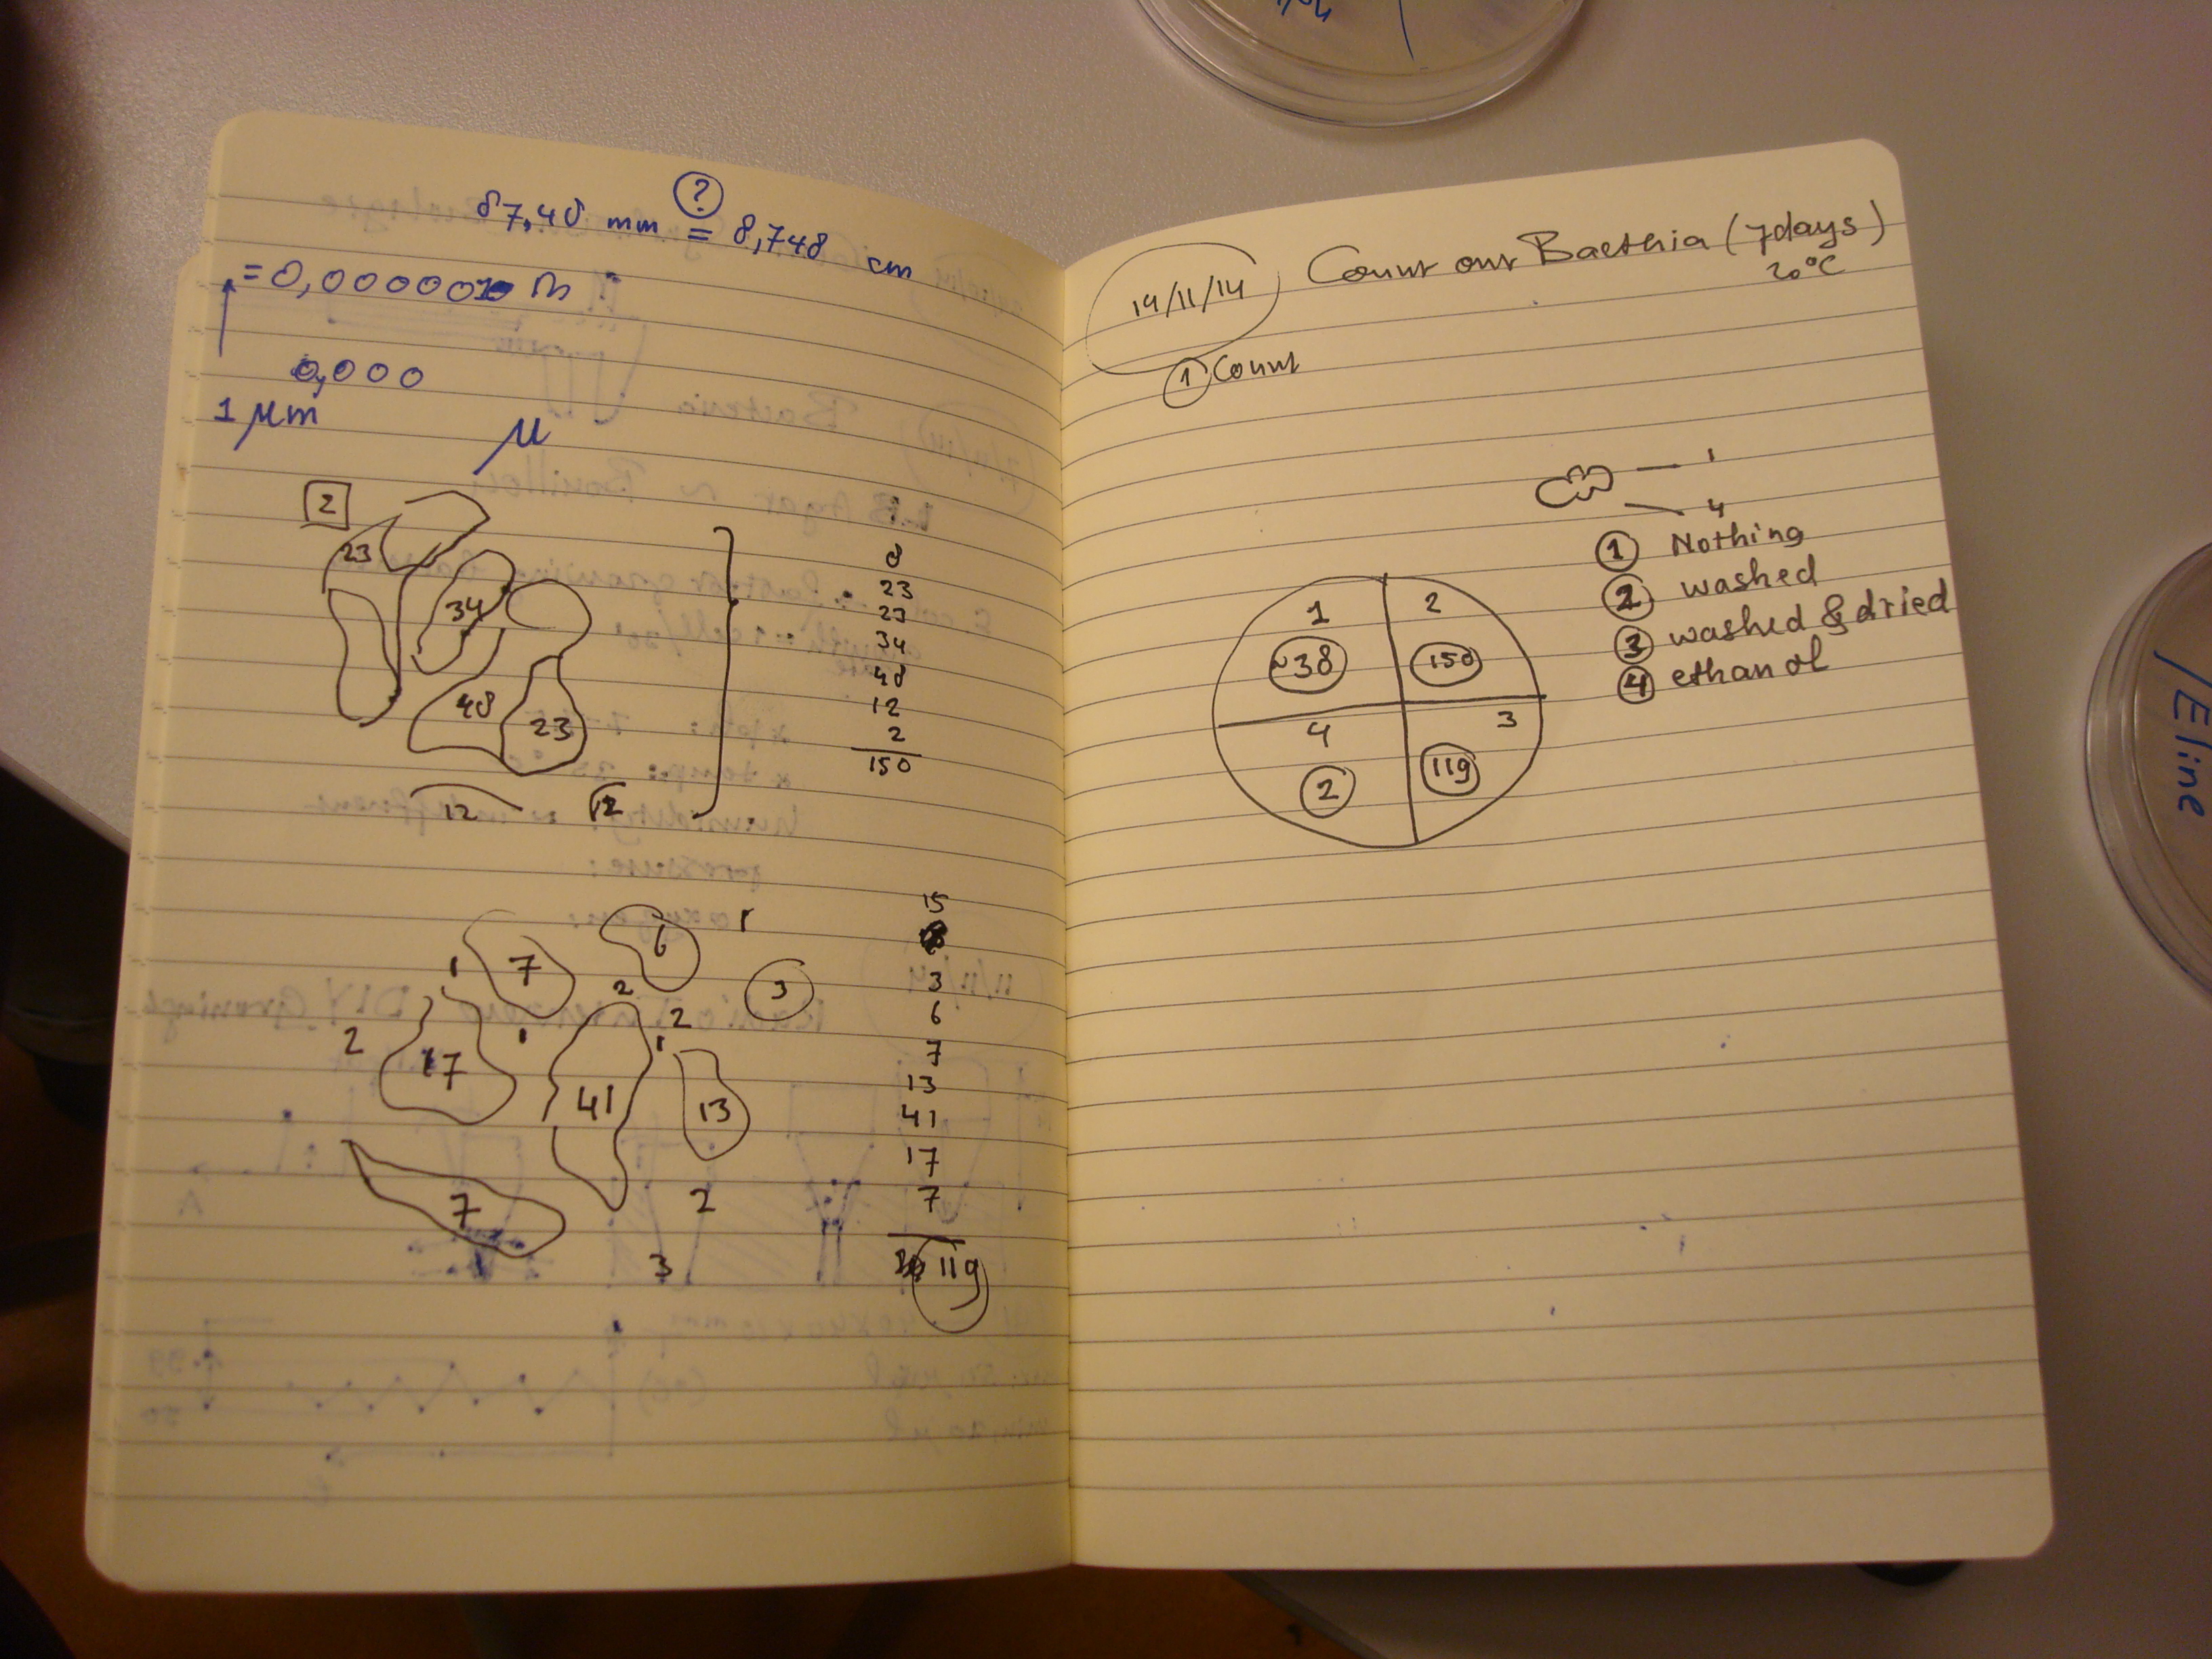 87,48 mm = 8,748 cm
?
= 0,0000010 m
0,000
1 μm
μ
2
23
34
48
23
12
12
8
23
23
34
48
12
2
150
7
6
1
1
2
3
2
17
1
2
1
41
13
7
2
3
15
3
6
7
13
41
17
7
119
19/11/14
Count our Baethia (7days)
20°C
1 Count
1
4
1 Nothing
2 washed
3 washed & dried
4 ethanol
1
2
~38
150
4
3
2
119
/Eline